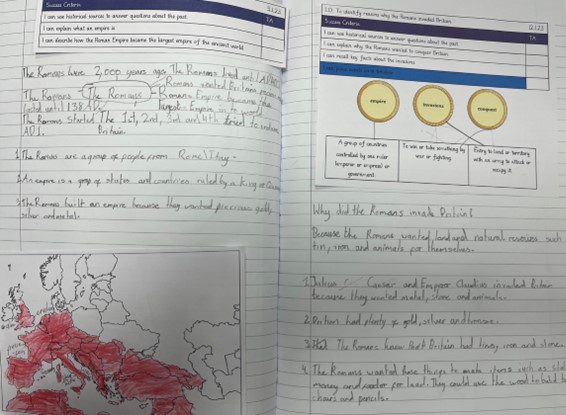 Success Criteria
TA
I can use historical sources to answer questions about the past.
I can explain what an empire is
I can describe how the Roman Empire became the largest empire of the ancient world.
The Romans were 2,000 years ago. The Romans lived until
Romans wanted Britain
The Romans
Roman Empire became the
until 138 AD.
largest Empire in the
The Romans started The 1st, 2nd, 3rd and 4th tried to
Britain.
1. The Romans are a group of people from Rome/Italy.
2. An empire is a group of states and countries ruled by a king
3. The Romans built an empire because they wanted precious gold,
silver and metal.
L.O. To identify reasons why the Romans invaded Britain.
Success Criteria
TA
I can use historical sources to answer questions about the past
I can explain why the Romans wanted to conquer Britain.
I can recall key facts about the invasions
empire
invasions
conquest
A group of countries
controlled by one ruler
(emperor or empress) or
government
To win or take something by
war or fighting
Entry to land or territory
with an army to attack or
occupy it.
Why did the Romans invade Britain?
Because the Romans wanted land and natural resources such
tin, iron and animals for themselves.
1. Julius Caesar and Emperor Claudius invaded Britain
because they wanted metal, stone and animals.
2. Britain had plenty of gold, silver and
3. The Romans knew that Britain had tin, iron and
4. The Romans wanted these things to make items such as
money and They could use the wood to build
chairs and pencils.